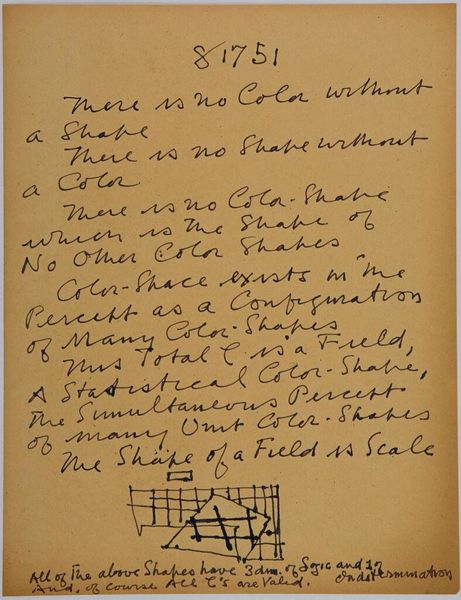 81751
There is no Color without
a Shape
There is no Shape without
a Color
There is no Color-Shape
which is the Shape of
No Other Color Shapes
Color-Space exists in the
Percept as a Configuration
of Many Color-Shapes
This Total C is a Field,
A Statistical Color-Shape,
The Simultaneous Percept
of many Unit Color-Shapes
The Shape of a Field is Scale
All of The above Shapes have 3 dm. of Logic and 1 of
Indetermination
And, of course All C's are Valid.